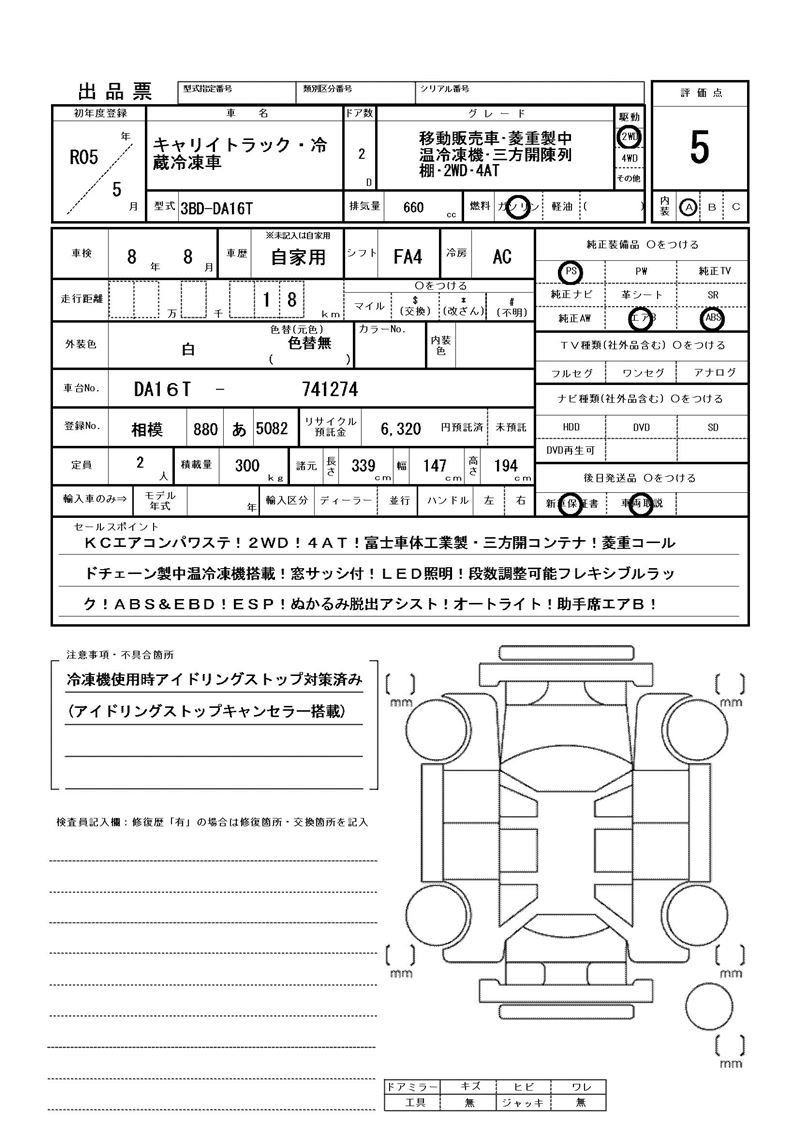 出品票
型式指定番号 類別区分番号 シリアル番号
評価点
5
内装 A B C
初年度登録 車名 ドア数 グレード 駆動
R05年 5月
キャリイトラック・冷
蔵冷凍車
2 D
移動販売車・菱重製中
温冷凍機・三方開陳列
棚・2WD・4AT
2WD
4WD
その他
型式 3BD-DA16T 排気量 660 cc 燃料 ガソリン 軽油 ( )
車検 8年 8月 車歴 ※未記入は自家用 自家用 シフト FA4 冷房 AC
走行距離 万 千 1 8 km
○をつける
マイル $(交換) *(改ざん) #(不明)
外装色 白 色替(元色) 色替無 ( ) カラーNo. 内装色
車台No. DA16T - 741274
登録No. 相模 880 あ 5082 リサイクル預託金 6,320 円預託済 未預託
定員 2人 積載量 300 kg 諸元 長さ 339 cm 幅 147 cm 高さ 194 cm
輸入車のみ⇒ モデル年式 年 輸入区分 ディーラー 並行 ハンドル 左 右
純正装備品 ○をつける
PS PW 純正TV
純正ナビ 革シート SR
純正AW エアB ABS
TV種類(社外品含む) ○をつける
フルセグ ワンセグ アナログ
ナビ種類(社外品含む) ○をつける
HDD DVD SD
DVD再生可
後日発送品 ○をつける
新車保証書 車両取説
セールスポイント
KCエアコンパワステ!2WD!4AT!富士車体工業製・三方開コンテナ!菱重コール
ドチェーン製中温冷凍機搭載!窓サッシ付!LED照明!段数調整可能フレキシブルラッ
ク!ABS&EBD!ESP!ぬかるみ脱出アシスト!オートライト!助手席エアB!
注意事項・不具合箇所
冷凍機使用時アイドリングストップ対策済み
(アイドリングストップキャンセラー搭載)
検査員記入欄:修復歴「有」の場合は修復箇所・交換箇所を記入
[ ] mm
[ ] mm
[ ] mm
[ ] mm
[ ] mm
ドアミラー キズ ヒビ ワレ
工具 無 ジャッキ 無